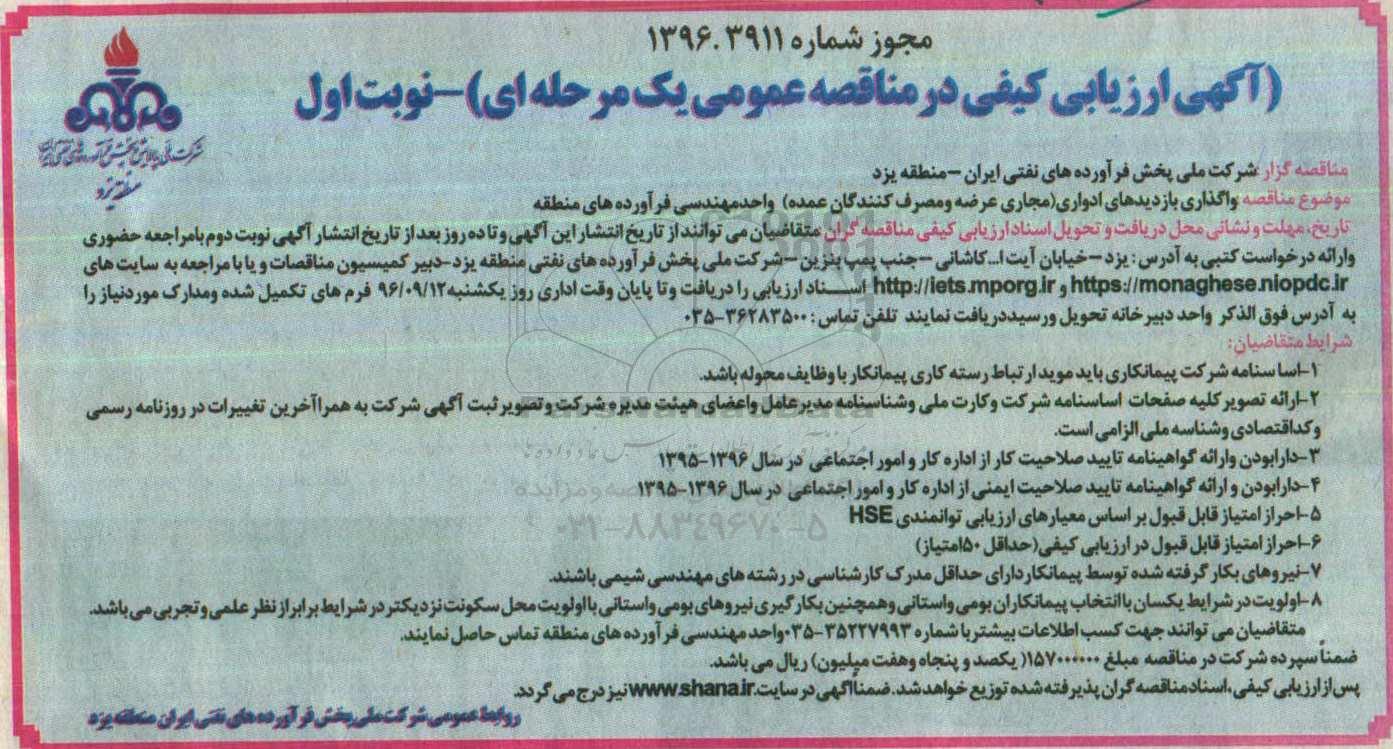 مجوز شماره ۱۳۹۶.۳۹۱۱
(آگهی ارزیابی کیفی در مناقصه عمومی یک مرحله ای)-نوبت اول
شرکت ملی پالایش و پخش فرآورده های نفتی ایران
منطقه یزد
مناقصه گزار: شرکت ملی پخش فرآورده های نفتی ایران -منطقه یزد
موضوع مناقصه: واگذاری بازدیدهای ادواری(مجاری عرضه ومصرف کنندگان عمده) واحدمهندسی فرآورده های منطقه
تاریخ، مهلت و نشانی محل دریافت و تحویل اسناد ارزیابی کیفی مناقصه گران: متقاضیان می توانند از تاریخ انتشار این آگهی و تا ده روز بعد از تاریخ انتشار آگهی نوبت دوم بامراجعه حضوری
وارائه درخواست کتبی به آدرس: یزد -خیابان آیت ا...کاشانی -جنب پمپ بنزین-شرکت ملی پخش فرآورده های نفتی منطقه یزد-دبیر کمیسیون مناقصات و یا با مراجعه به سایت های
https://monaghese.niopdc.ir و http://iets.mporg.ir اسناد ارزیابی را دریافت وتا پایان وقت اداری روز یکشنبه۹۶/۰۹/۱۲ فرم های تکمیل شده ومدارک موردنیاز را
به آدرس فوق الذکر واحد دبیرخانه تحویل ورسیددریافت نمایند تلفن تماس: ۳۶۲۸۳۵۰۰-۰۳۵
شرایط متقاضیان:
۱-اساسنامه شرکت پیمانکاری باید مویدارتباط رسته کاری پیمانکار با وظایف محوله باشد.
۲-ارائه تصویر کلیه صفحات اساسنامه شرکت وکارت ملی وشناسنامه مدیرعامل واعضای هیئت مدیره شرکت وتصویر ثبت آگهی شرکت به همراآخرین تغییرات در روزنامه رسمی
وکداقتصادی وشناسه ملی الزامی است.
۳-دارابودن وارائه گواهینامه تایید صلاحیت کار از اداره کار و امور اجتماعی در سال ۱۳۹۶-۱۳۹۵
۴-دارابودن و ارائه گواهینامه تایید صلاحیت ایمنی از اداره کار و امور اجتماعی در سال ۱۳۹۶-۱۳۹۵
۵-احراز امتیاز قابل قبول بر اساس معیارهای ارزیابی توانمندی HSE
۶-احراز امتیاز قابل قبول در ارزیابی کیفی(حداقل ۵۰امتیاز)
۷-نیروهای بکار گرفته شده توسط پیمانکاردارای حداقل مدرک کارشناسی در رشته های مهندسی شیمی باشند.
۸-اولویت در شرایط یکسان باانتخاب پیمانکاران بومی واستانی وهمچنین بکار گیری نیروهای بومی واستانی بااولویت محل سکونت نزدیکتر در شرایط برابر از نظر علمی وتجربی می باشد.
متقاضیان می توانند جهت کسب اطلاعات بیشتربا شماره ۳۵۲۲۷۹۹۳-۰۳۵واحد مهندسی فرآورده های منطقه تماس حاصل نمایند.
ضمناً سپرده شرکت در مناقصه مبلغ ۱۵۷۰۰۰۰۰۰( یکصد و پنجاه وهفت میلیون) ریال می باشد.
پس از ارزیابی کیفی، اسناد مناقصه گران پذیرفته شده توزیع خواهد شد. ضمناًآگهی در سایت www.shana.ir نیز درج می گردد.
روابط عمومی شرکت ملی پخش فرآورده های نفتی ایران منطقه یزد
۰۲۱-۸۸۳۴۹۶۷۰-۵